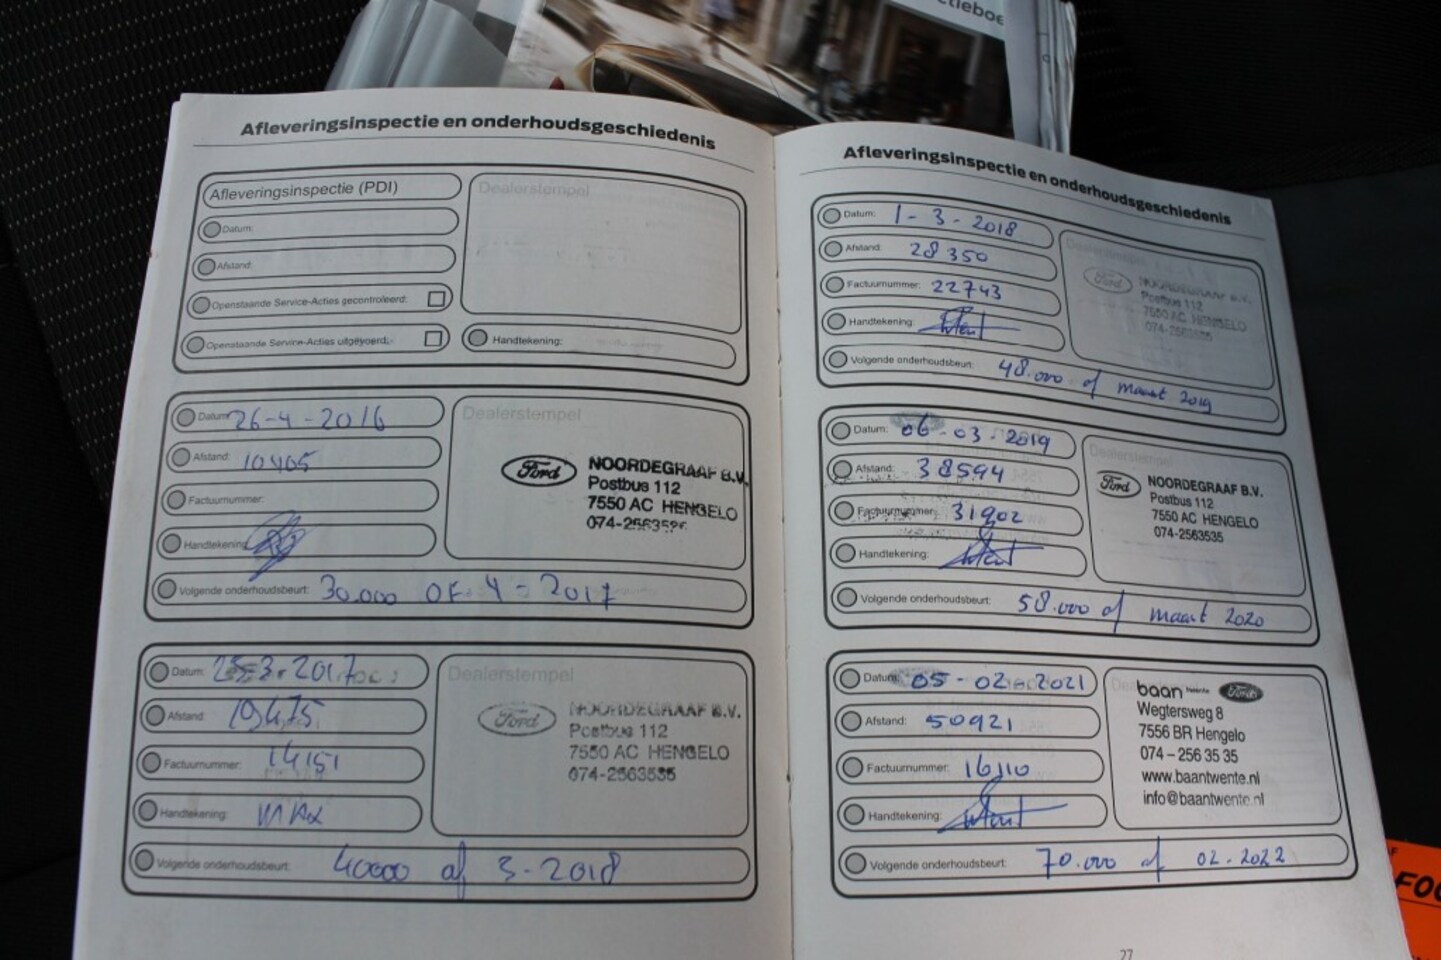 Afleveringsinspectie en onderhoudsgeschiedenis
Afleveringsinspectie (PDI)
Dealerstempel
Datum:
Afstand:
Openstaande Service-Acties gecontroleerd:
Openstaande Service-Acties uitgevoerd:
Handtekening:
Datum: 26-4-2016
Afstand: 10405
Factuurnummer:
Handtekening:
Volgende onderhoudsbeurt: 30.000 OF 4-2017
Dealerstempel
Ford
NOORDEGRAAF B.V.
Postbus 112
7550 AC HENGELO
Datum: 25-3-2017
Afstand: 19475
Factuurnummer: 14151
Handtekening:
Volgende onderhoudsbeurt: 40000 of 3-2018
Dealerstempel
Ford
NOORDEGRAAF B.V.
Postbus 112
7550 AC HENGELO
074-2563535
Afleveringsinspectie en onderhoudsgeschiedenis
Datum: 1-3-2018
Afstand: 28350
Factuurnummer: 22743
Handtekening:
Volgende onderhoudsbeurt: 48.000 of maart 2019
Ford
NOORDEGRAAF B.V.
Postbus 112
7550 AC HENGELO
074-2563535
Datum: 06-03-2019
Afstand: 38594
Factuurnummer: 31902
Handtekening:
Volgende onderhoudsbeurt: 58.000 of maart 2020
Dealerstempel
Ford
NOORDEGRAAF B.V.
Postbus 112
7550 AC HENGELO
074-2563535
Datum: 05-02-2021
Afstand: 50921
Factuurnummer: 16110
Handtekening:
Volgende onderhoudsbeurt: 70.000 of 02-2022
baan twente Ford
Wegtersweg 8
7556 BR Hengelo
074 – 256 35 35
www.baantwente.nl
info@baantwente.nl
27